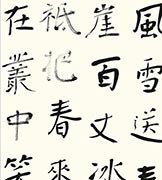 風雪送春
崖百丈冰
祗把春來
在叢中笑